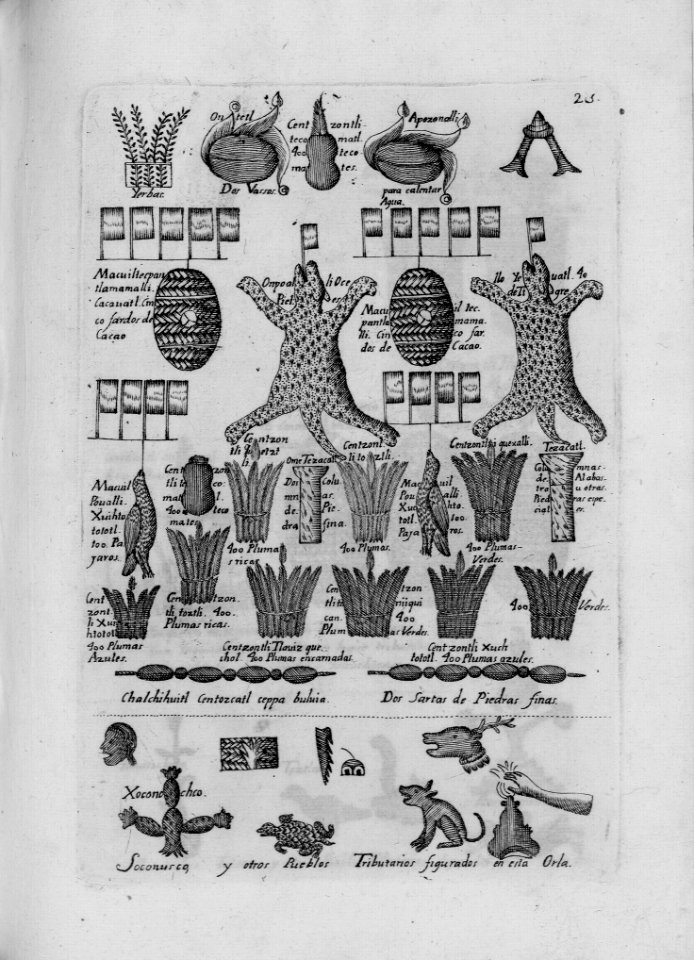 23.
Yerbas.
Ontetl
Dos Vassos.
Centzontli-
tecomatl.
400 teco-
mates.
Apozonalli
para calentar
Agua.
Macuiltecpan
tlamamalli.
Cacauatl. Cin
co fardos de
Cacao
Onpoalli Oce
Piel es
Macuil tec.
pantla mama.
lli. Cinco far.
dos de Cacao.
40
de Tigre.
Macuil
Poualli.
Xiuhto
tototl.
100. Pa
jaros.
Centzon
tli tecol
mat
400 teco
mates
Centzon
tli
400 Pluma
s ricas.
Ome Tezacatl
Dos Colu
mnas.
de. Pie-
dra fina.
Centzont
li toztli.
400 Plumas.
Macuil
Poualli.
Xuch
totol. 100.
Pajaros.
Centzontli quexalli.
400 Plumas-
Verdes.
Tezacatl.
Columnas-
de Alabas.
tro u otras
Piedras espe-
cial er.
Centzon
tli toztli. 400.
Plumas ricas.
Cent
zont.
li Xui
htototl
400 Plumas
Azules.
Centzontli Tlauiz que.
chol. 400 Plumas encarnadas.
Centzon
tli
can. 400
Plumas Verdes.
Centzontli Xuch
tototl. 400 Plumas azules.
400 Verdes.
Chalchihuitl Centozcatl ceppa buluia.
Dos Sartas de Piedras finas.
Xoconochco.
Soconusco, y otros Pueblos Tributarios figurados en esta Orla.